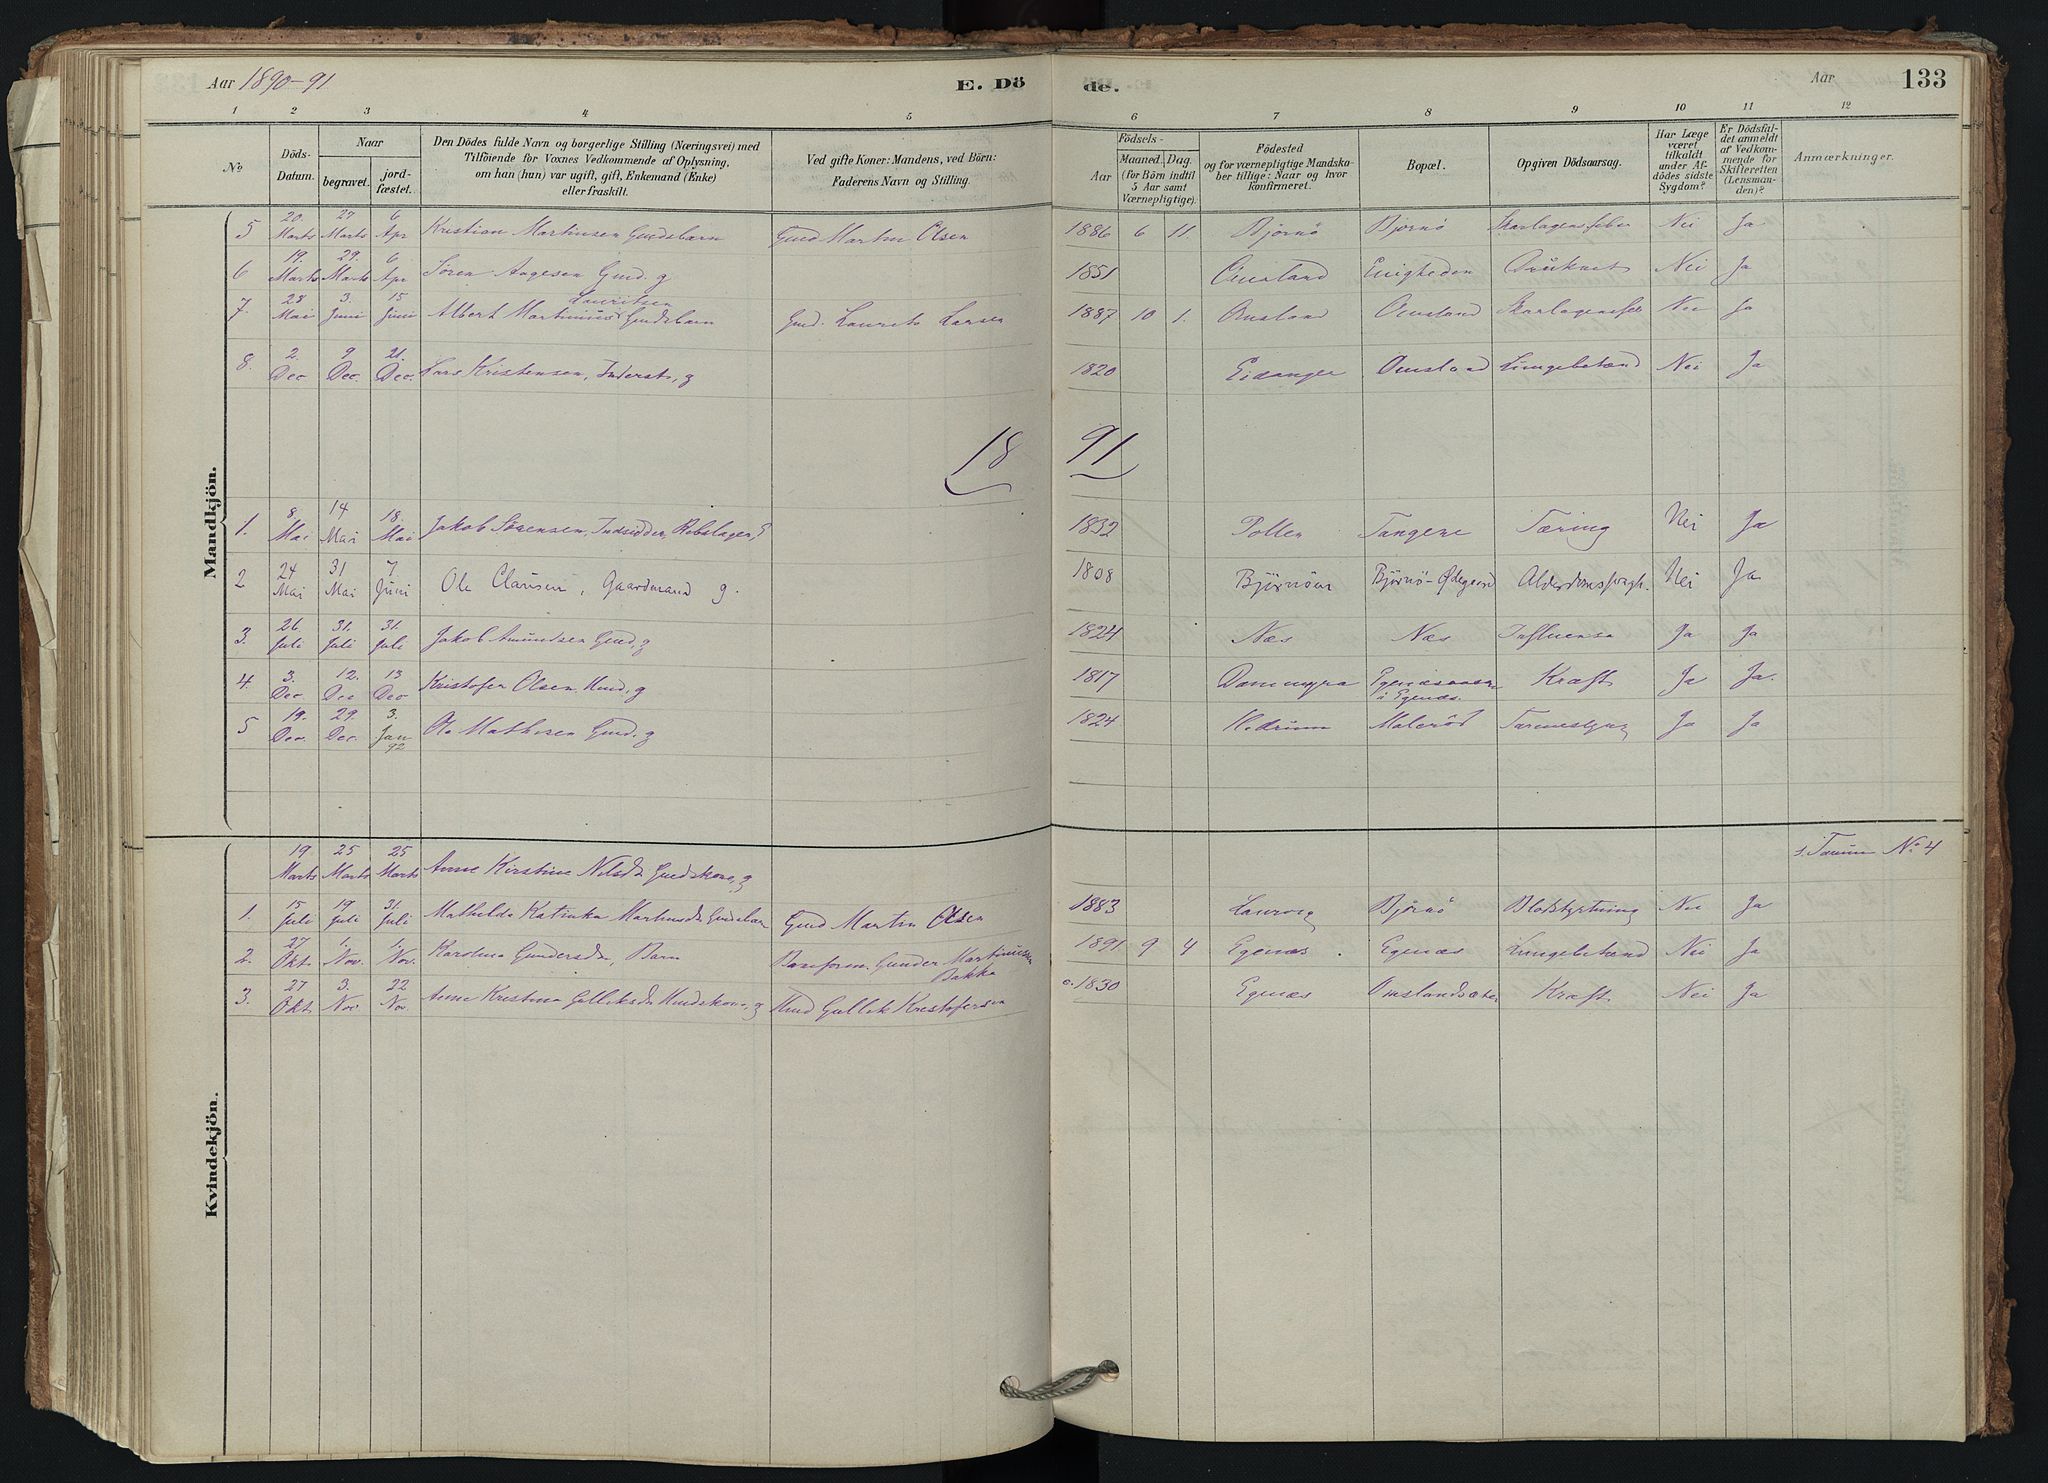 Aar 1890-91
E. Dö
de.
Aar
133
1 2 3 4 5 6 7 8 9 10 11 12
No
Döds-Datum.
Naar
begravet.
jord-fæstet.
Den Dödes fulde Navn og borgerlige Stilling (Næringsvei) med
Tilföiende for Voxnes Vedkommende af Oplysning,
om han (hun) var ugift, gift, Enkemand (Enke)
eller fraskilt.
Ved gifte Koner: Mandens, ved Börn:
Faderens Navn og Stilling.
Födsels-
Aar
Maaned. Dag.
(for Börn indtil
5 Aar samt
Værnepligtige).
Födested
og for værnepligtige Mandska-
ber tillige: Naar og hvor
konfirmeret.
Bopæl.
Opgiven Dödsaarsag.
Har Læge
været
tilkaldt
under Af-
dödes sidste
Sygdom?
Er Dödsfal-
det anmeldt
af Vedkom-
mende for
Skifteretten
(Lensman-
den)?
Anmærkninger.
Mandkjön.
5 20 Marts 27 Marts 6 Apr Kristian Martinsen Gmdsbarn Gmd Martin Olsen 1886 6 11 Bjørnø Bjørnø Skarlagensfeber Nei Ja
6 19. Marts 29. Marts 6 Apr Søren Aagesen Gmd. g 1851 Omsland Enigheden Nei Ja
7. 28 Mai 3. Juni 15 Juni Albert Martinius Lauritsen Gmdsbarn Gmd. Laurits Larsen 1887 10 1. Omsland Omsland Skarlagensfeb Nei Ja
8. 2. Dec. 9 Dec. 21. Dec. Lars Kristensen, Inderst, g 1820 Eidanger Omsland Lungebetænd Nei Ja
18 91
1. 8. Mai 14 Mai 18. Mai Jakob Sørensen, Indsidder, Rebslager, E 1832 Pollen Tangene Tæring Nei Ja
2 24 Mai 31 Mai 7 Juni Ole Clausen, Gaardmand g. 1808 Bjørnøen Bjørnø-Ødegaard Alderdomssvagh. Nei Ja
3. 26 Juli 31. Juli 31. Juli Jakob Amundsen Gmd, g 1824 Næs Næs Influensa Ja Ja
4. 3. Dec 12. Dec 13 Dec Kristofer Olsen, Hmd, g 1817 Dammyra i Egenæs Kræft Ja Ja.
5 19. Dec. 29. Dec. 3. Jan 92 Ole Mathisen Gmd. g 1824 Hedrum Malerød Ja Ja
Kvindekjön.
19 Marts 25 Marts 25 Marts Anne Kirstine Nilsdt Gmdskone, g s. Tanum No 4
1. 15 Juli 19 Juli 31. Juli Mathilde Katinka Martinsdt Gmdsbarn Gmd Martin Olsen 1883 Laurvig Bjørnø Blodstyrtning Nei Ja
2. 27 Okt 1. Nov. 1. Nov. Karoline Gundersdt, Barn Baneform. Gunder Martinussen Bakke 1891 9 4 Egenæs Egenæs Lungebetænd Nei Ja
3. 27 Okt 3. Nov. 22 Nov. Anne Kristine Gulliksdt Hmdskone, g Hmd Gullik Kristofersen c. 1830 Egenæs Omslandsæter Kræft Nei Ja